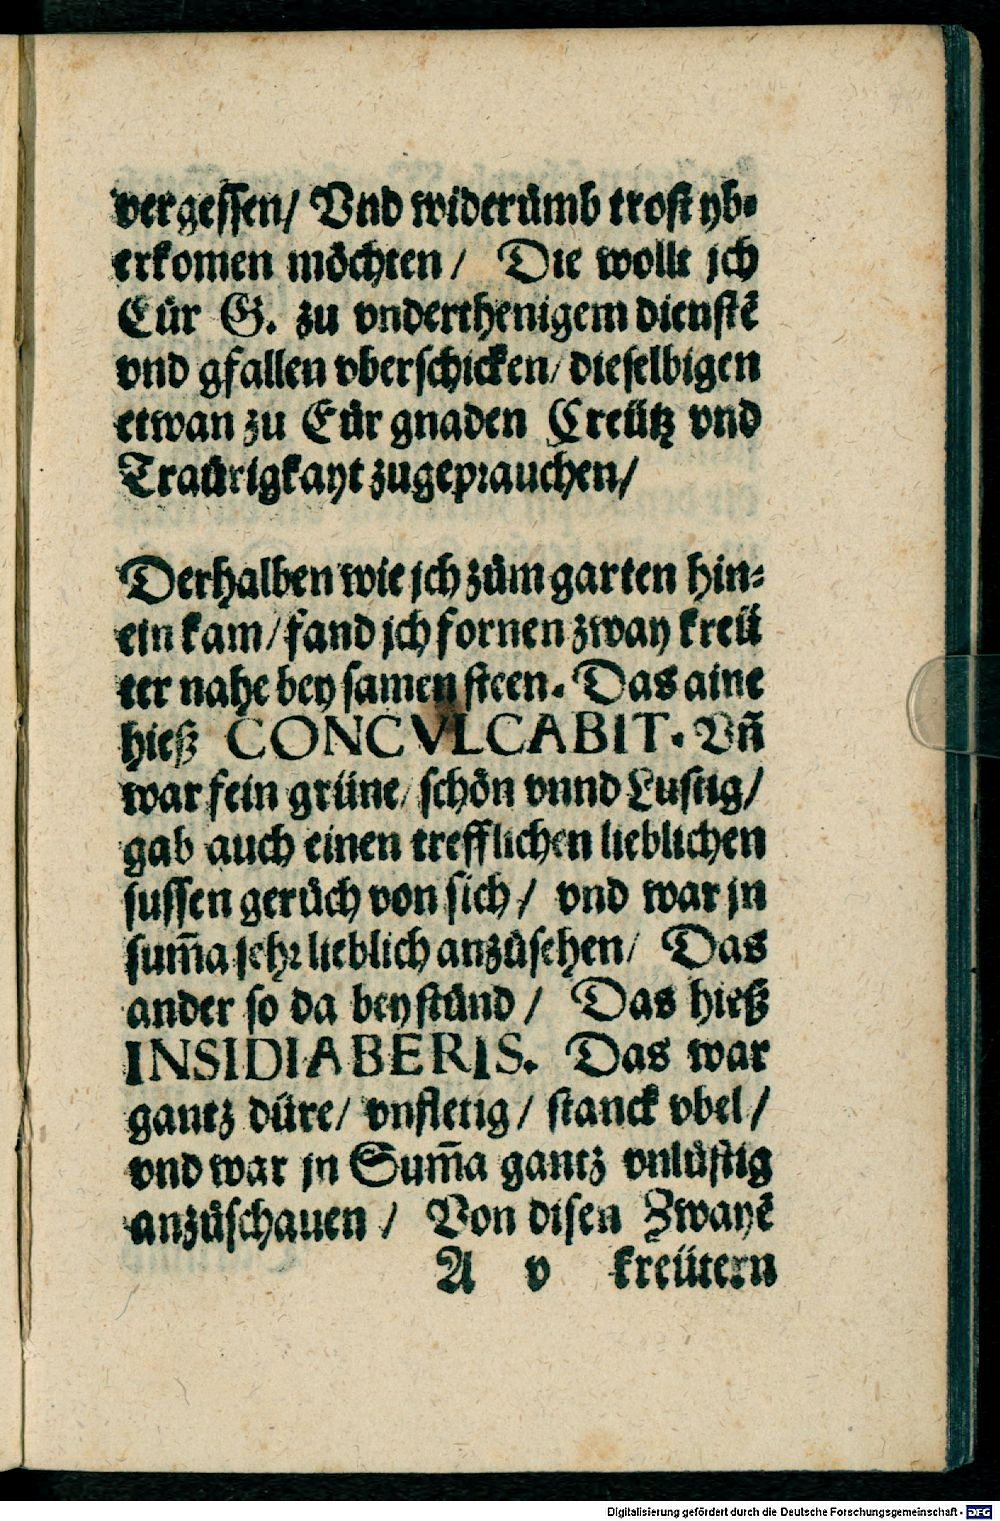 vergessen/ Vnd widerůmb trost yb⸗
erkomen möchten/ Die wollt jch
Eůr G. zu vnderthenigem dienstē
vnd gfallen vberschicken/ dieselbigen
etwan zu Eůr gnaden Creütz vnd
Traůrigkayt zugeprauchen/
Derhalben wie jch zům garten hin⸗
ein kam/ fand jch fornen zway kreü
ter nahe bey samen steen. Das aine
hieß CONCVLCABIT. Vñ
war fein grüne/ schön vnnd Lustig/
gab auch einen trefflichen lieblichen
sussen gerůch von sich/ vnd war jn
sum̃a sehr lieblich anzůsehen/ Das
ander so da bey stůnd/ Das hieß
INSIDIABERIS. Das war
gantz düre/ vnfletig/ stanck vbel/
vnd war jn Sum̃a gantz vnlůstig
anzůschauen/ Von disen Zwayē
A v kreütern
Digitalisierung gefördert durch die Deutsche Forschungsgemeinschaft - DFG